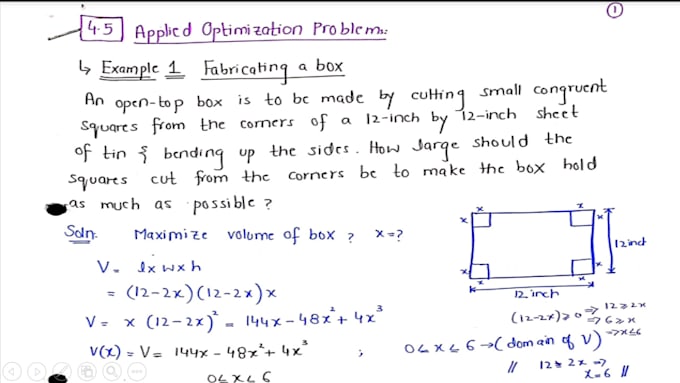 1
4.5 Applied Optimization Problems:
↳ Example 1 Fabricating a box
An open-top box is to be made by cutting small congruent
squares from the corners of a 12-inch by 12-inch sheet
of tin & bending up the sides. How large should the
squares cut from the corners be to make the box hold
as much as possible?
Soln: Maximize volume of box ? x=?
V = l x w x h
= (12-2x)(12-2x)x
V = x (12-2x)² = 144x - 48x² + 4x³
V(x) = V = 144x - 48x² + 4x³ ; 0≤x≤6 → (domain of V)
0≤x≤6
x x
x x
x x
x x
12 inch
12 inch
(12-2x) ≥ 0 ⇒ 12 ≥ 2x
⇒ 6 ≥ x
⇒ x ≤ 6
// 12 = 2x ⇒
x = 6 //